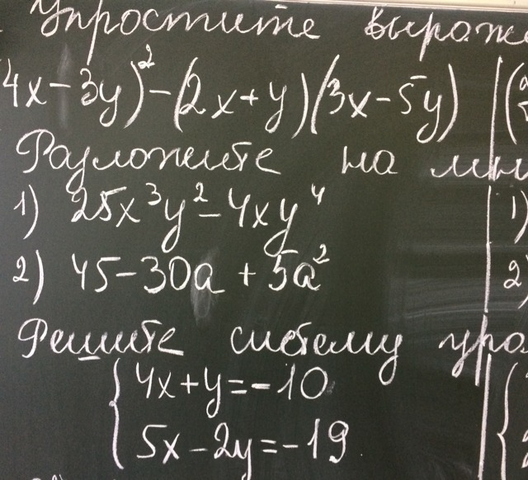 Упростите
4x-3y)²-(2x+y)(3x-5y)
Разложите на
1) 25x³y²-4xy⁴
2) 45-30a+5a²
Решите систему
{4x+y=-10
5x-2y=-19
1)
2)